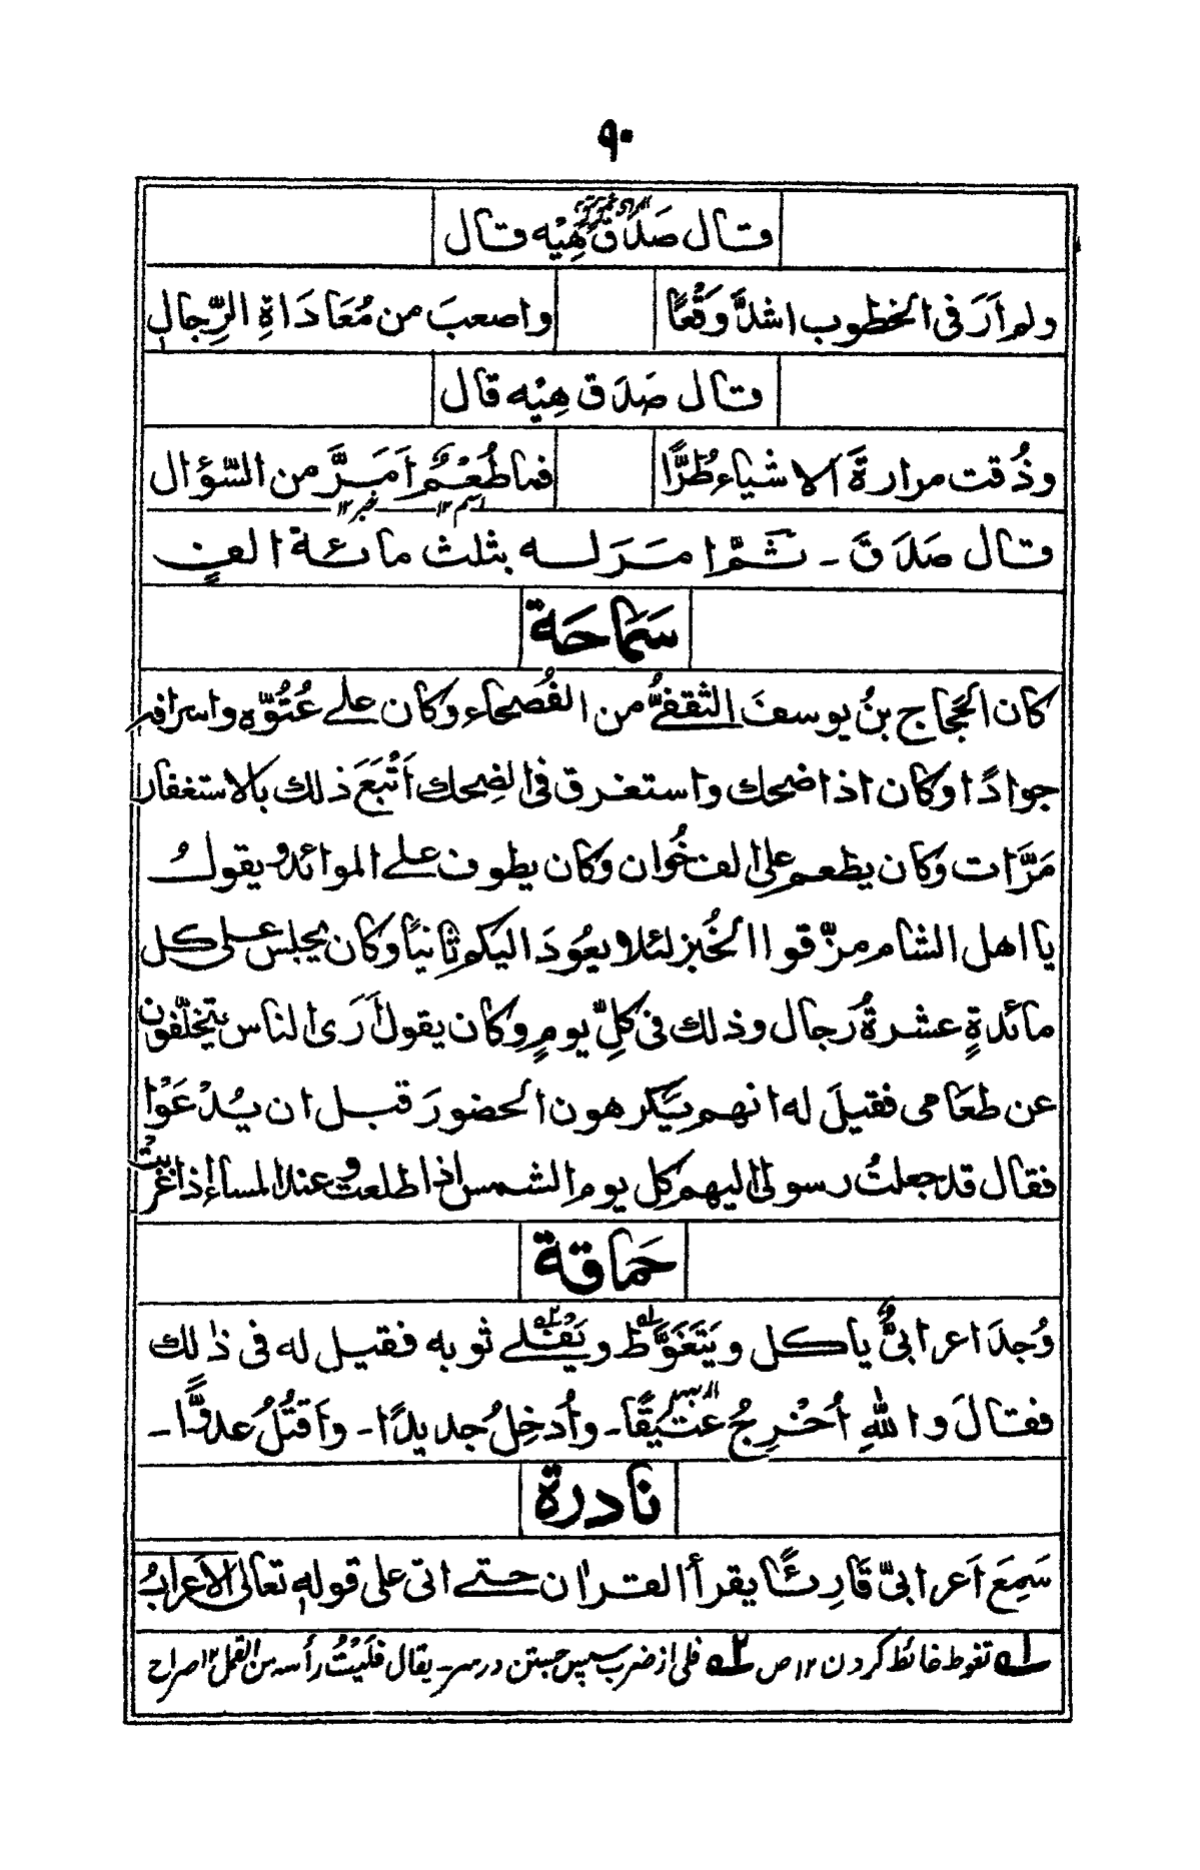 ٩٠
قال صَدَق هِيْه قال
ولم اَرَ فى الخطوب اشدَّ وَقْعًا واصعبَ من مُعَادَاةِ الرِّجالِ
قال صَدَق هِيْه قال
وذُقت مرارةَ الاشياء طُرًّا فما طُعْمٌ اَمَرَّ من السّؤال
اسم ١٢ خبر ١٢
قال صَدَق ـ ثمّ امرَ له بثلث مائة الفٍ
سَمَاحَة
كان الحَجّاج بنُ يوسفَ الثقفىُّ من الفُصحاء وكان على عُتُوِّه واسرافه
جوادًا وكان اذا ضحك واستغرق فى الضِحك اَتْبَعَ ذلك بالاستغفار
مَرَّات وكان يطعم على الف خُوان وكان يطوف على الموائد و يقولُ
يا اهل الشام مزّقوا الخُبز لئلا يعُودَ اليكم ثانيًا وكان يجلس على كل
مائدةٍ عشرةُ رجال وذلك فى كلِّ يومٍ وكان يقول أَرَى الناس يتخلّفون
عن طعامى فقيلَ له انهم يَكرهون الحضورَ قبل ان يُدْعَوْا
فقال قد جعلتُ رسولى اليهم كل يوم الشمس اذا طلعت و عند المساء اذا غربتْ
حَمَاقة
وُجدَ اعرابىٌّ ياكل و يَتَغَوَّط و يَفْلى ثوبه فقيل له فى ذلك
فقالَ واللهِ اُخْرِجُ عَتيْقًا ـ واُدخِلُ جديدًا ـ واَقتُلُ عدوًّا ـ
نادرة
سَمِعَ اَعرابىّ قَارِئًا يقرأ القران حتى اتى على قوله تعالى الاَعرابُ
١ه تغوط غائط كردن ١٢ ص ٢ه فلى از ضرب سپس جستن در سر ـ يقال فَلَيْتُ رأسه من القمل ١٢ صراح